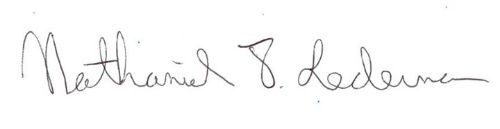 Nathaniel T. Lederman